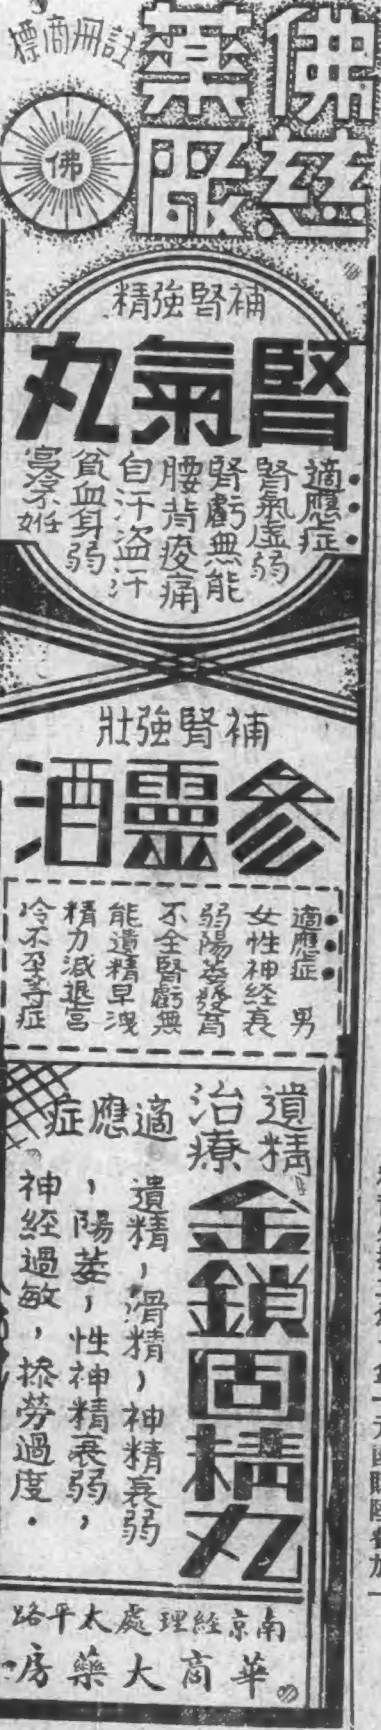 佛慈
藥廠
註冊商標
佛
補腎強精
腎氣丸
適應症
腎氣虛弱
腎虧無能
腰背痠痛
自汗盜汗
貧血身弱
宮冷不姙
補腎強壯
參靈酒
適應症 男
女性神經衰
弱陽萎發育
不全腎虧無
能遺精早洩
精力減退宮
冷不孕等症
遺精
治療
金鎖固精丸
適應症
遺精，滑精，神精衰弱
，陽萎，性神精衰弱，
神經過敏，操勞過度．
南京經理處太平路
華商大藥房